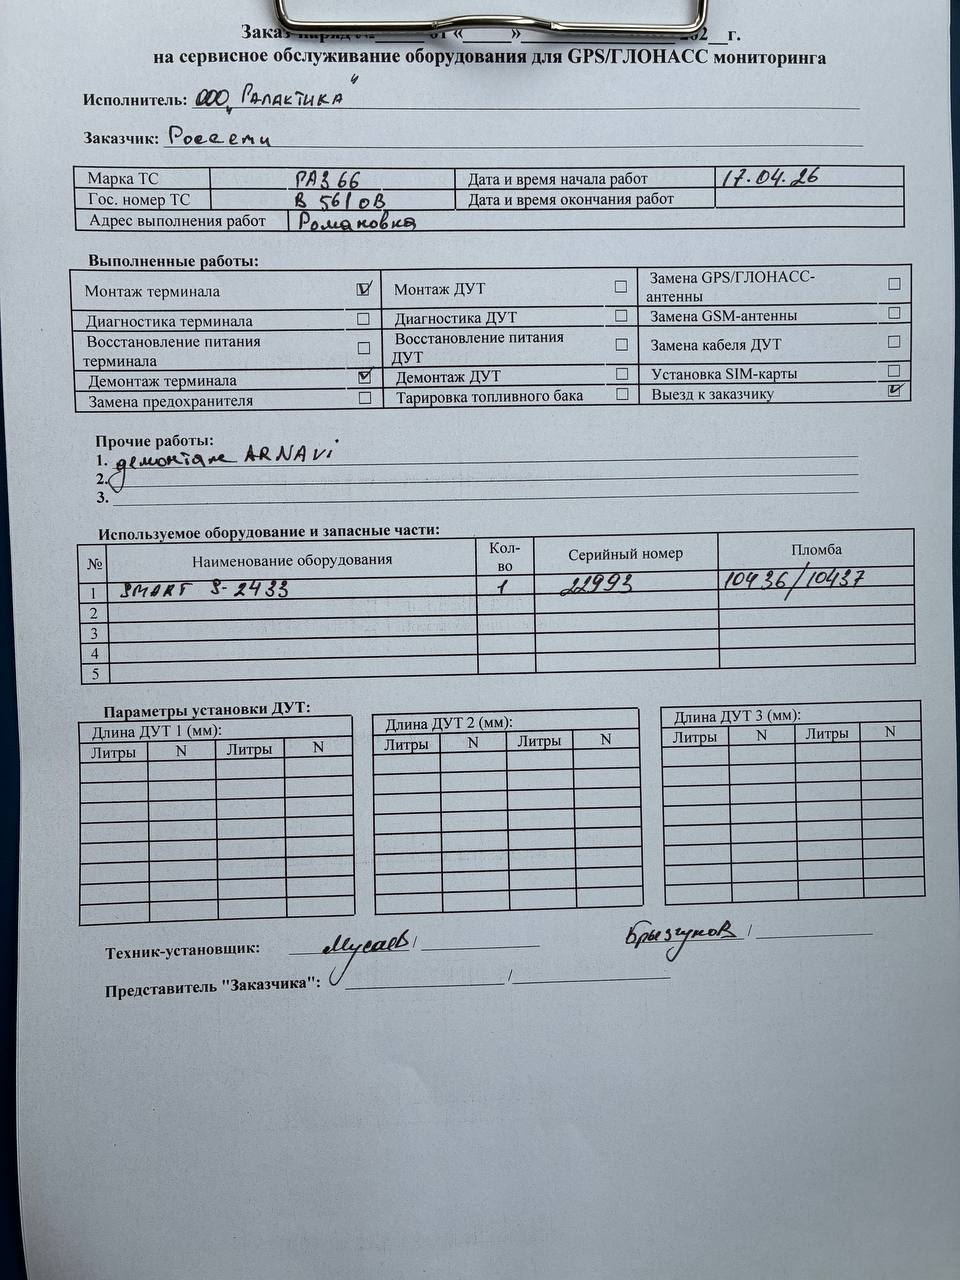 Заказ-наряд № от « » 202 г.
на сервисное обслуживание оборудования для GPS/ГЛОНАСС мониторинга
Исполнитель: ООО „Галактика"
Заказчик: Россети
Марка ТС ГАЗ 66 Дата и время начала работ 17.04.26
Гос. номер ТС В 561 ОВ Дата и время окончания работ
Адрес выполнения работ Романовка
Выполненные работы:
Монтаж терминала ☑ Монтаж ДУТ ☐ Замена GPS/ГЛОНАСС-
антенны ☐
Диагностика терминала ☐ Диагностика ДУТ ☐ Замена GSM-антенны ☐
Восстановление питания
терминала ☐ Восстановление питания
ДУТ ☐ Замена кабеля ДУТ ☐
Демонтаж терминала ☑ Демонтаж ДУТ ☐ Установка SIM-карты ☐
Замена предохранителя ☐ Тарировка топливного бака ☐ Выезд к заказчику ☑
Прочие работы:
1. демонтаж ARNAVi
2.
3.
Используемое оборудование и запасные части:
№ Наименование оборудования Кол-
во Серийный номер Пломба
1 SMART S-2433 1 22993 10436/10437
2
3
4
5
Параметры установки ДУТ:
Длина ДУТ 1 (мм): Длина ДУТ 2 (мм): Длина ДУТ 3 (мм):
Литры N Литры N Литры N Литры N Литры N Литры N
Техник-установщик: Мусаев / Брызгунов /
Представитель "Заказчика": /